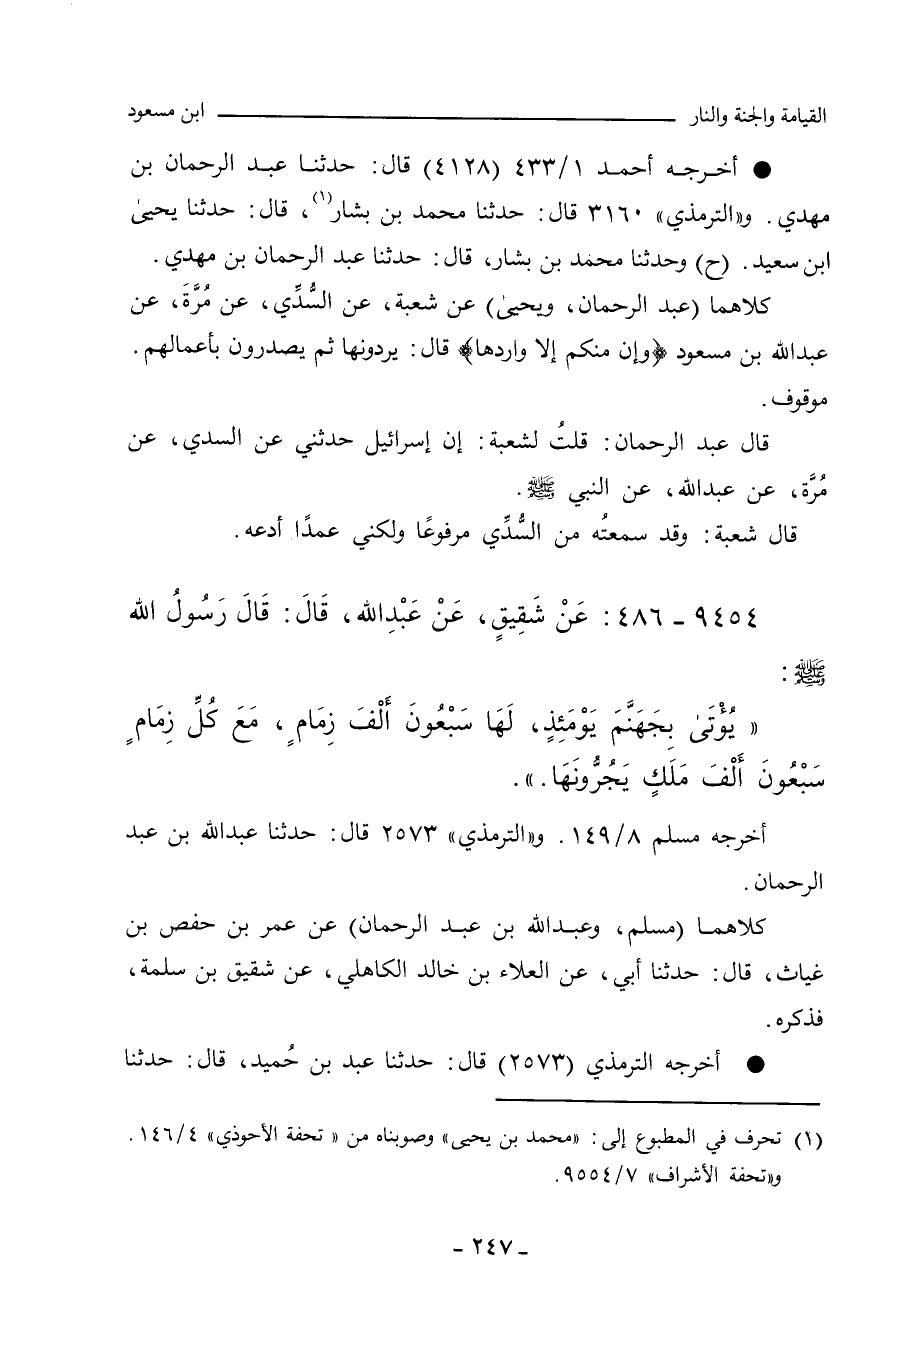 القيامة والجنة والنار ــــــــــ ابن مسعود
● أخرجه أحمد ٤٣٣/١ (٤١٢٨) قال: حدثنا عبد الرحمان بن
مهدي. و«الترمذي» ٣١٦٠ قال: حدثنا محمد بن بشار(١)، قال: حدثنا يحيىٰ
ابن سعيد. (ح) وحدثنا محمد بن بشار، قال: حدثنا عبد الرحمان بن مهدي.
كلاهما (عبد الرحمان، ويحيىٰ) عن شعبة، عن السُّدِّي، عن مُرَّةَ، عن
عبدالله بن مسعود ﴿وإن منكم إلا واردها﴾ قال: يردونها ثم يصدرون بأعمالهم.
موقوف.
قال عبد الرحمان: قلتُ لشعبة: إن إسرائيل حدثني عن السدي، عن
مُرَّة، عن عبدالله، عن النبي ﷺ.
قال شعبة: وقد سمعتُه من السُّدِّي مرفوعًا ولكني عمدًا أدعه.
٩٤٥٤ ـ ٤٨٦: عَنْ شَقِيقٍ، عَنْ عَبْدِالله، قَالَ: قَالَ رَسُولُ الله
ﷺ:
« يُؤْتَىٰ بِجَهَنَّمَ يَوْمَئِذٍ، لَهَا سَبْعُونَ أَلْفَ زِمَامٍ، مَعَ كُلِّ زِمَامٍ
سَبْعُونَ أَلْفَ مَلَكٍ يَجُرُّونَهَا.».
أخرجه مسلم ١٤٩/٨. و«الترمذي» ٢٥٧٣ قال: حدثنا عبدالله بن عبد
الرحمان.
كلاهما (مسلم، وعبدالله بن عبد الرحمان) عن عمر بن حفص بن
غياث، قال: حدثنا أبي، عن العلاء بن خالد الكاهلي، عن شقيق بن سلمة،
فذكره.
● أخرجه الترمذي (٢٥٧٣) قال: حدثنا عبد بن حُميد، قال: حدثنا
(١) تحرف في المطبوع إلى: «محمد بن يحيى» وصوبناه من « تحفة الأحوذي» ١٤٦/٤.
و«تحفة الأشراف» ٩٥٥٤/٧.
ـ ٢٤٧ ـ